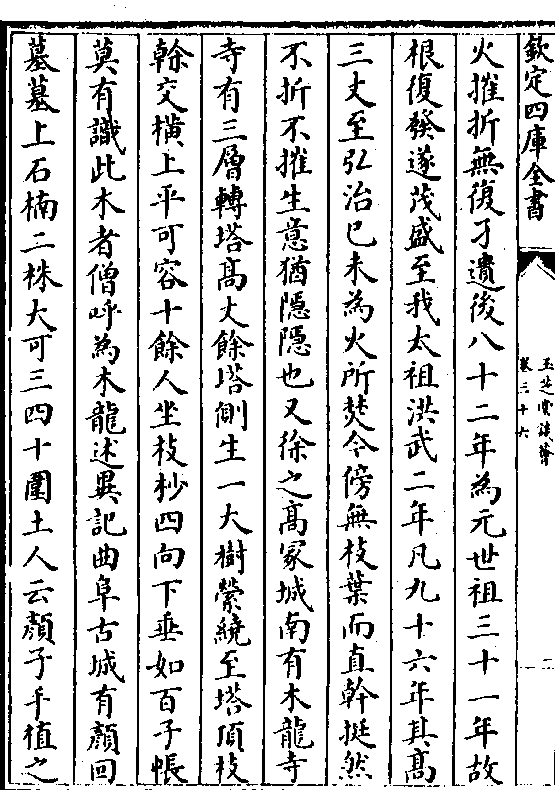 欽定四庫全書
玉芝堂談薈
卷三十六
二
火摧折無復孑遺後八十二年為元世祖三十一年故
根復發遂茂盛至我太祖洪武二年凡九十六年其髙
三丈至弘治己未為火所焚今傍無枝葉而直幹挺然
不折不摧生意猶隱隱也又徐之髙冢城南有木龍寺
寺有三層轉塔髙丈餘塔側生一大樹縈繞至塔頂枝
幹交橫上平可容十餘人坐枝杪四向下垂如百子帳
莫有識此木者僧呼為木龍述異記曲阜古城有顔回
墓墓上石楠二株大可三四十圍土人云顔子手植之